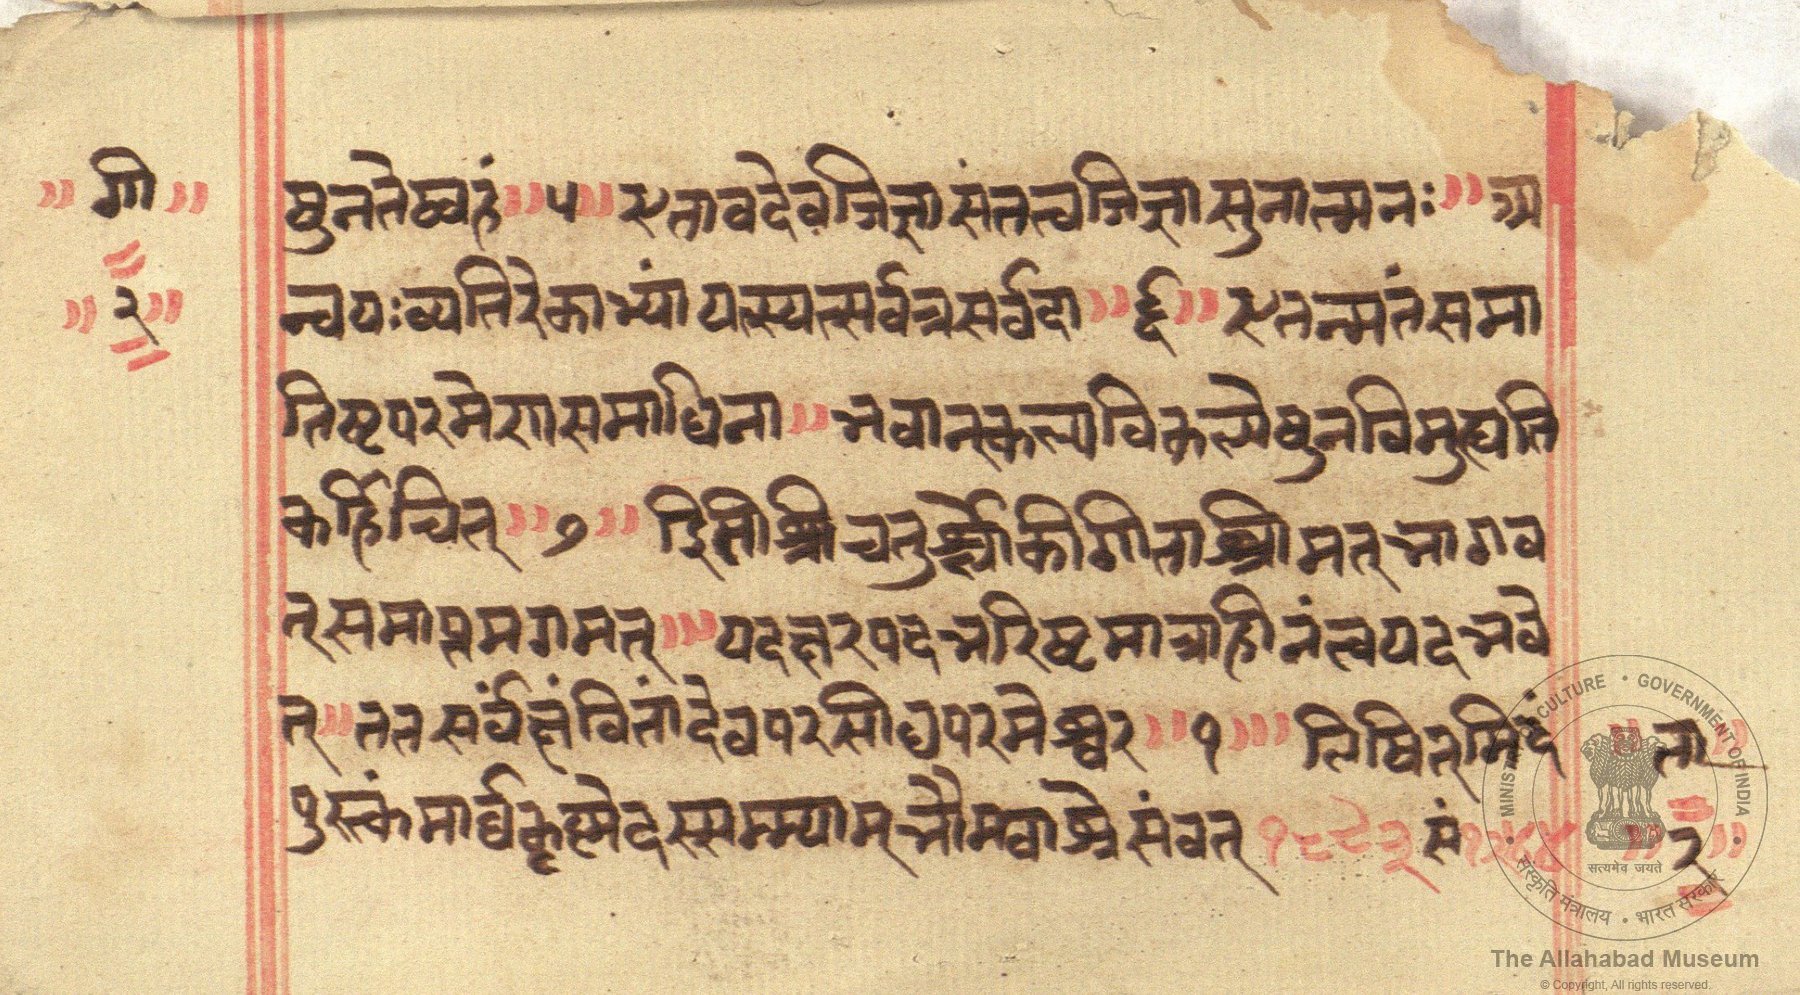 गी
२
षुनतेष्वहं ॥ ५ ॥ एतावदेवजिज्ञासंतत्वजिज्ञासुनात्मनः ॥ अ
न्वयःव्यतिरेकाभ्यां यत्स्यत्सर्वत्रसर्वदा ॥ ६ ॥ एतन्मतंसमा
तिष्टपरमेणसमाधिना ॥ भवान्कल्पविकल्पेषुनविमुह्यति
कर्हिचित् ॥ ७ ॥ इितीश्रीचतुर्श्लोकीगीताश्रीमत् भागव
त् समाप्तमगमत् ॥ यदक्षरपदभरिष्टमात्राहीनंत्वयदभवे
त् ॥ तत सर्वंक्षंवितांदेवपरसीधपरमेश्वर ॥ १ ॥ लिषितमिदं
पुस्तकंमार्घकृष्मेदससम्म्याम् भौमवाश्रे संवत् १८९३ सं
ता
२
MINISTRY OF CULTURE • GOVERNMENT OF INDIA
सत्यमेव जयते
संस्कृति मंत्रालय • भारत सरकार
The Allahabad Museum
© Copyright, All rights reserved.